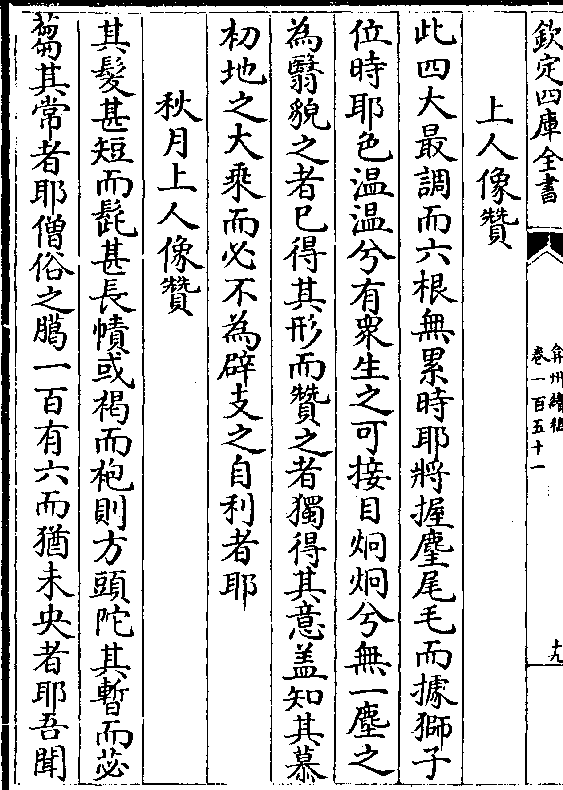 欽定四庫全書
弇州續稿
卷一百五十一
十九
上人像贊
此四大最調而六根無累時耶將握麈尾毛而據獅子
位時耶色温温兮有衆生之可接目炯炯兮無一塵之
為翳貌之者已得其形而贊之者獨得其意盖知其慕
初地之大乗而必不為辟支之自利者耶
秋月上人像贊
其髮甚短而髭甚長幘或褐而袍則方頭陀其暫而苾
蒭其常者耶僧俗之臈一百有六而猶未央者耶吾聞